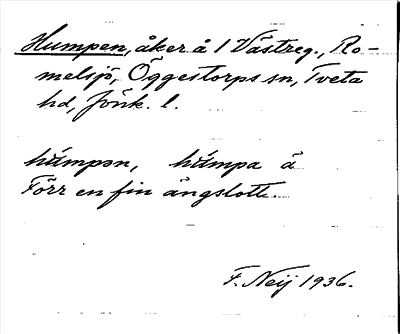 Humpen, åker å 1 Västreg., Ro-
melsjö, Öggestorps sn, Tveta
hd, Jönk. l.
húmpən, húmpa ä
Förr en fin ängslott.
F. Neij 1936.